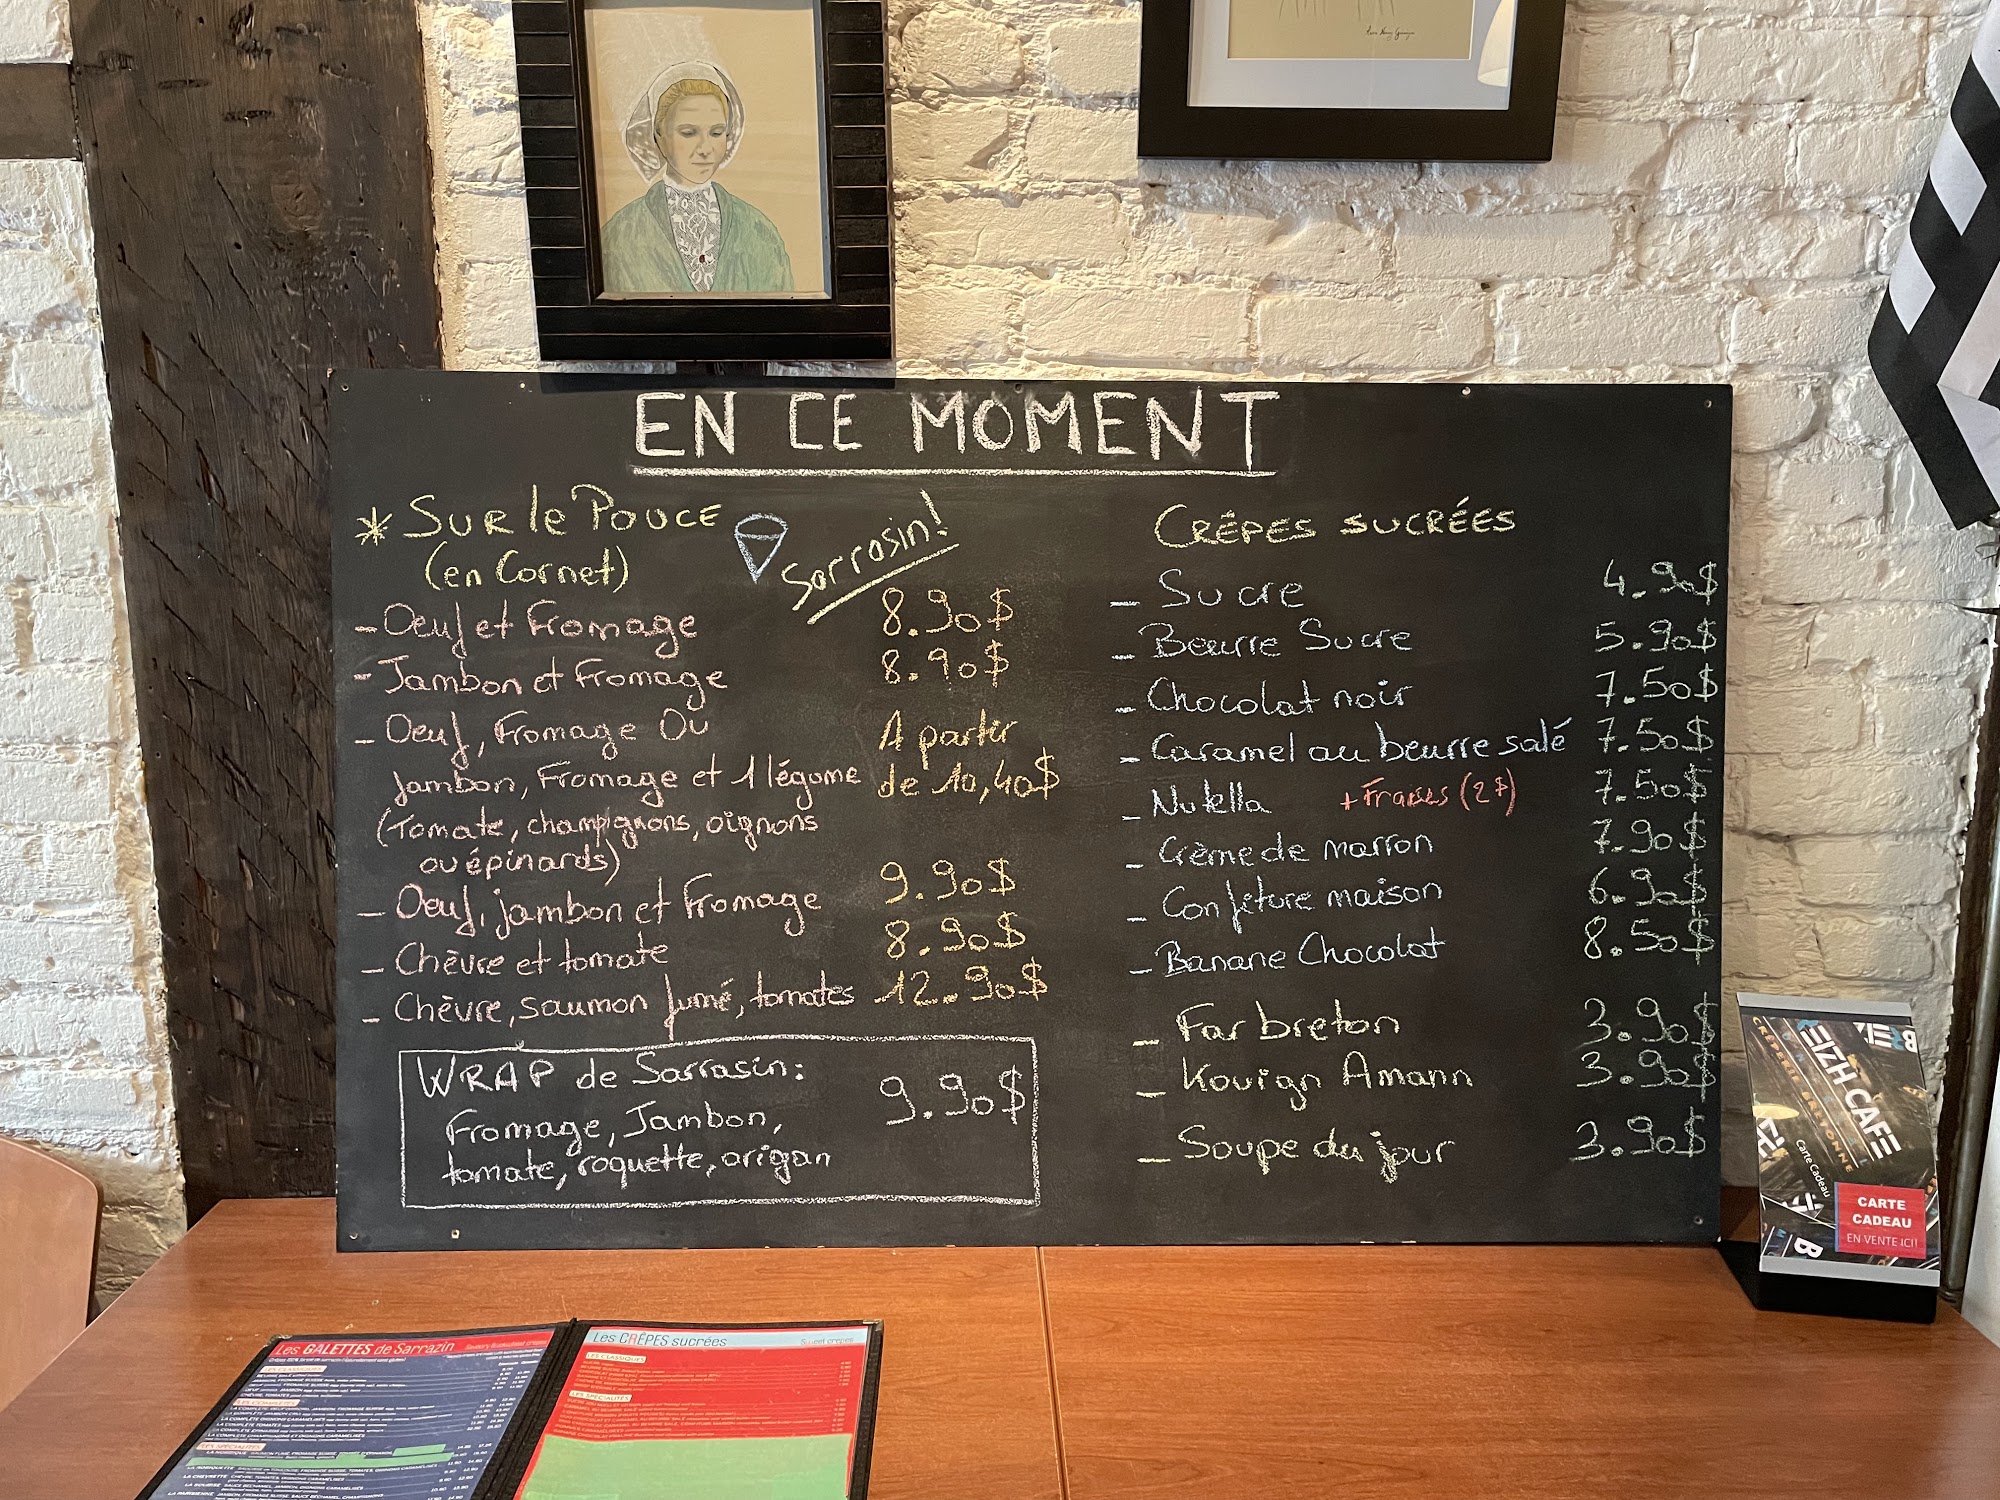 EN CE MOMENT
* SUR le POUCE
(en Cornet)
Sarrasin!
- Oeuf et Fromage 8.90$
- Jambon et Fromage 8.90$
- Oeuf, Fromage Ou A partir
Jambon, Fromage et 1 légume de 10,40$
(Tomate, champignons, oignons
ou épinards)
- Oeuf, jambon et Fromage 9.90$
- Chèvre et tomate 8.90$
- Chèvre, saumon fumé, tomates 12.90$
WRAP de Sarrasin: 9.90$
Fromage, Jambon,
tomate, roquette, origan
CRÊPES SUCRÉES
- Sucre 4.90$
- Beurre Sucre 5.90$
- Chocolat noir 7.50$
- Caramel au beurre salé 7.50$
- Nutella + Fraises (2$) 7.50$
- Crème de marron 7.90$
- Confiture maison 6.90$
- Banane Chocolat 8.50$
- Far breton 3.90$
- Kouign Amann 3.90$
- Soupe du jour 3.90$
BREIZH CAFE
CRÊPERIE BRETONNE
Carte Cadeau
CARTE
CADEAU
EN VENTE ICI!
Les GALETTES de Sarrazin
LES CLASSIQUES
LES COMPLÈTES
LES SPÉCIALITÉS
Les CRÊPES sucrées Sweet crepes
LES CLASSIQUES
LES SPÉCIALITÉS